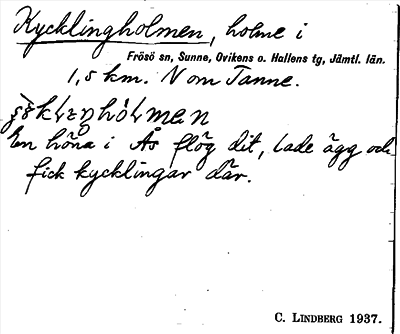 Kycklingholmen, holme i
Frösö sn, Sunne, Ovikens o. Hallens tg, Jämtl. län.
1,5 km. N om Tanne.
En höna i Ås flög dit, lade ägg och
fick kycklingar där.
C. LINDBERG 1937.